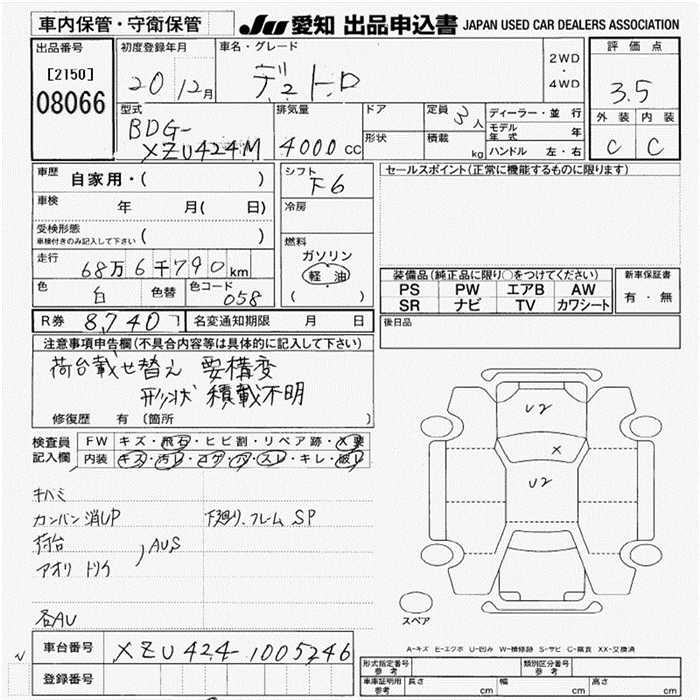 車内保管・守衛保管 JU 愛知 出品申込書 JAPAN USED CAR DEALERS ASSOCIATION
出品番号 [2150] 08066
初度登録年月 20 12月
車名・グレード デュトロ
2WD・4WD
評価点 3.5
外装 C 内装 C
型式 BDG-XZU424M
排気量 4000CC
ドア
形状
定員 3人
積載 kg
ディーラー・並行
モデル年式 年
ハンドル 左・右
車歴 自家用・( )
車検 年 月( 日)
受検形態 車検付きのみ記入して下さい ( )
走行 68万6千790km
色 白 色替 色コード 058
シフト F6
冷房
燃料 ガソリン 軽油 ( )
セールスポイント(正常に機能するものに限ります)
装備品(純正品に限り○をつけてください)
PS PW エアB AW
SR ナビ TV カワシート
新車保証書 有・無
R券 8,740 名変通知期限 月 日
後日品
注意事項申告欄(不具合内容等は具体的に記入して下さい)
荷台載せ替え 要構変
形状 積載不明
修復歴 有 (箇所 )
検査員記入欄
FW キズ・飛石・ヒビ割・リペア跡・X要
内装 キズ・汚レ・コゲ・穴・スレ・キレ・破レ
キハミ
カンバン消UP 下廻り.フレム SP
荷台
アオリ ドリイ AUS
各AU
U2
X
U2
スペア
A-キズ E-エクボ U-凹み W-補修跡 S-サビ C-腐食 XX-交換済
車台番号 XZU424-1005246
登録番号
形式指定番号 参考 類別区分番号 参考
車庫証明用 参考 長さ cm 幅 cm 高さ cm